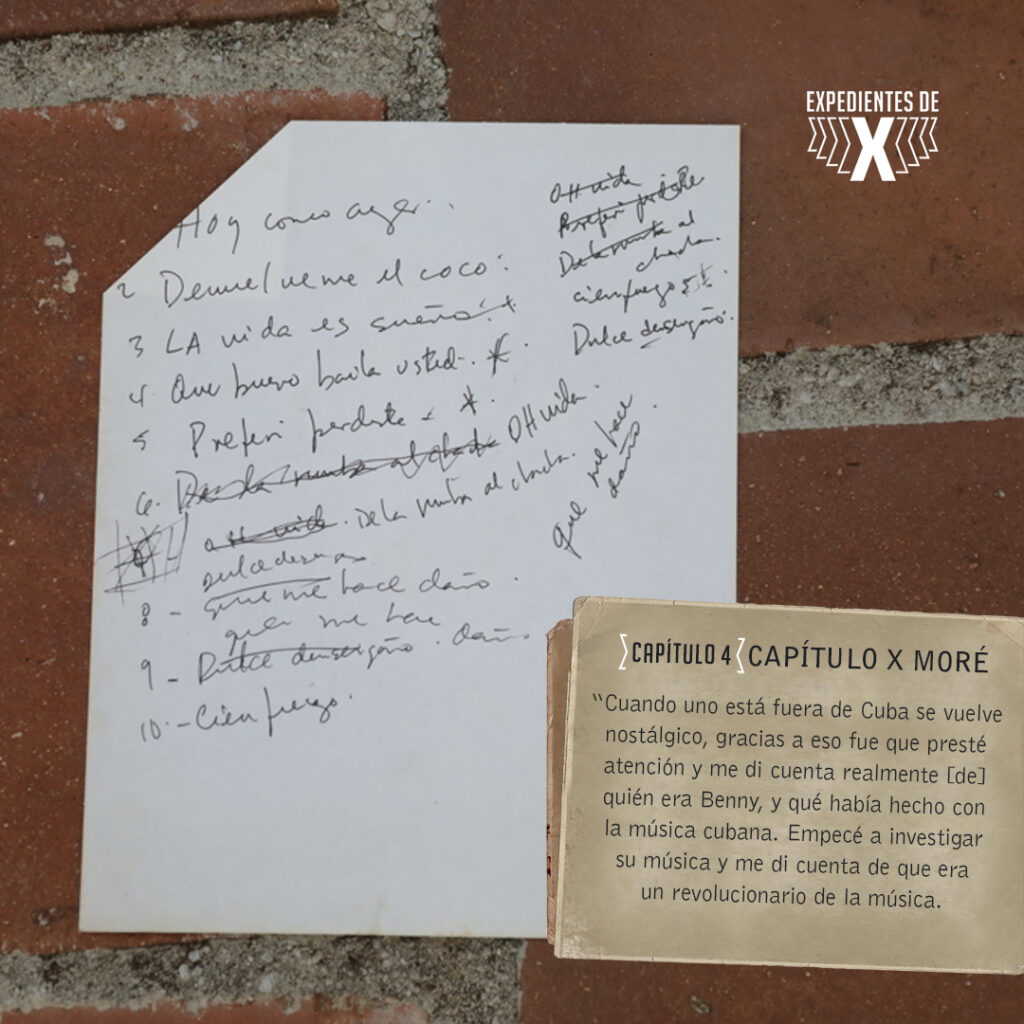 EXPEDIENTES DE
X
Hoy como ayer..
2 Devuelveme el coco.
3 LA vida es sueño. +
4 Que bueno baila usted. *.
5 Preferi perderte - *.
6. De la rumba al chacha OH vida.
OH vida. De la rumba al chacha.
dulce desengaño
8 - que me hace daño.
que me hace
9 - Dulce desengaño. daño.
10. - Cienfuego.
OH vida
Preferi perderte
De la rumba al
chacha.
cienfuegos *.
Dulce desengaño.
que me hace
daño.
CAPÍTULO 4 CAPÍTULO X MORÉ
“Cuando uno está fuera de Cuba se vuelve
nostálgico, gracias a eso fue que presté
atención y me di cuenta realmente [de]
quién era Benny, y qué había hecho con
la música cubana. Empecé a investigar
su música y me di cuenta de que era
un revolucionario de la música.